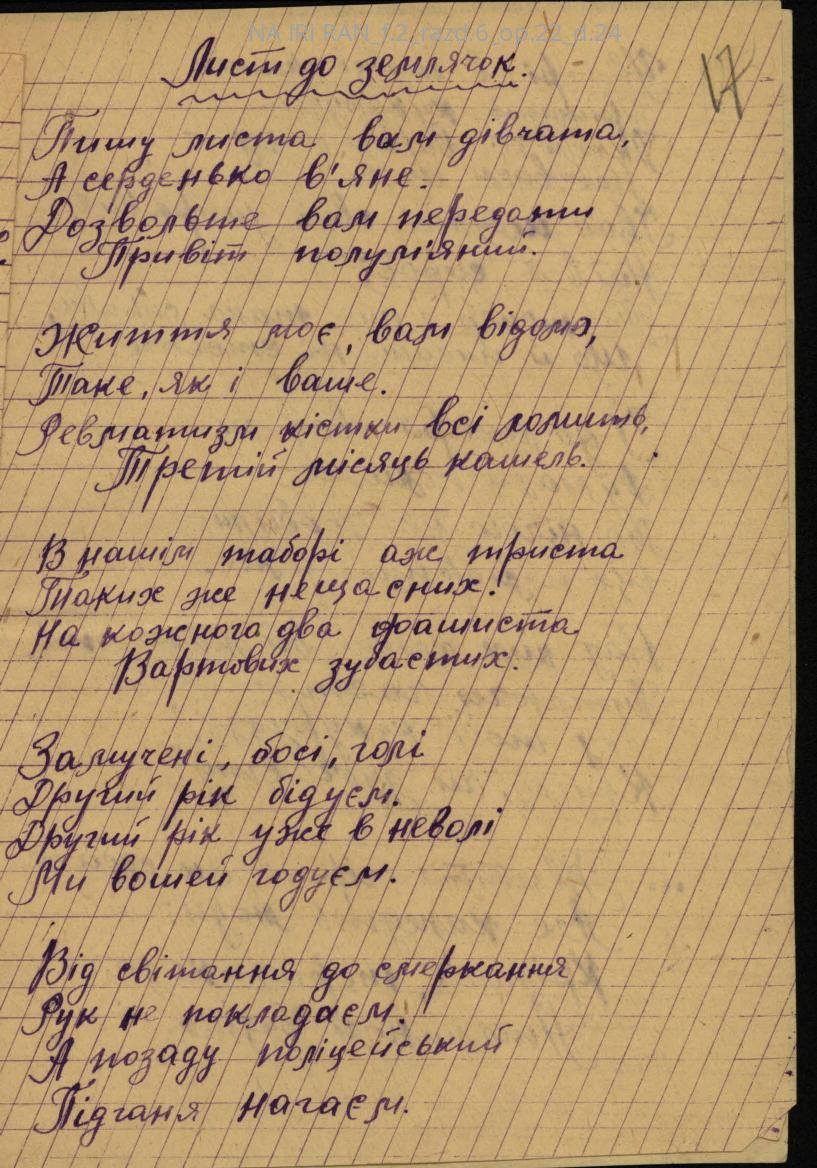 NA IRI RAN_f.2_razd.6_op.22_d.24
Лист до землячок.
17
Пишу листа вам дівчата,
А серденько в'яне.
Дозвольте вам передати
Привіт полум'яний.
Життя моє, вам відомо,
Таке, як і ваше.
Ревматизм кістки всі ломить,
Третій місяць кашель.
В нашім таборі аж триста
Таких же нещасних.
На кожного два фашиста
Вартових зубастих.
Замучені, босі, голі
Другий рік бідуєм.
Другий рік уже в неволі
Ми вошей годуєм.
Від світання до смеркання
Рук не покладаєм.
А позаду поліцейський
Підганя нагаєм.